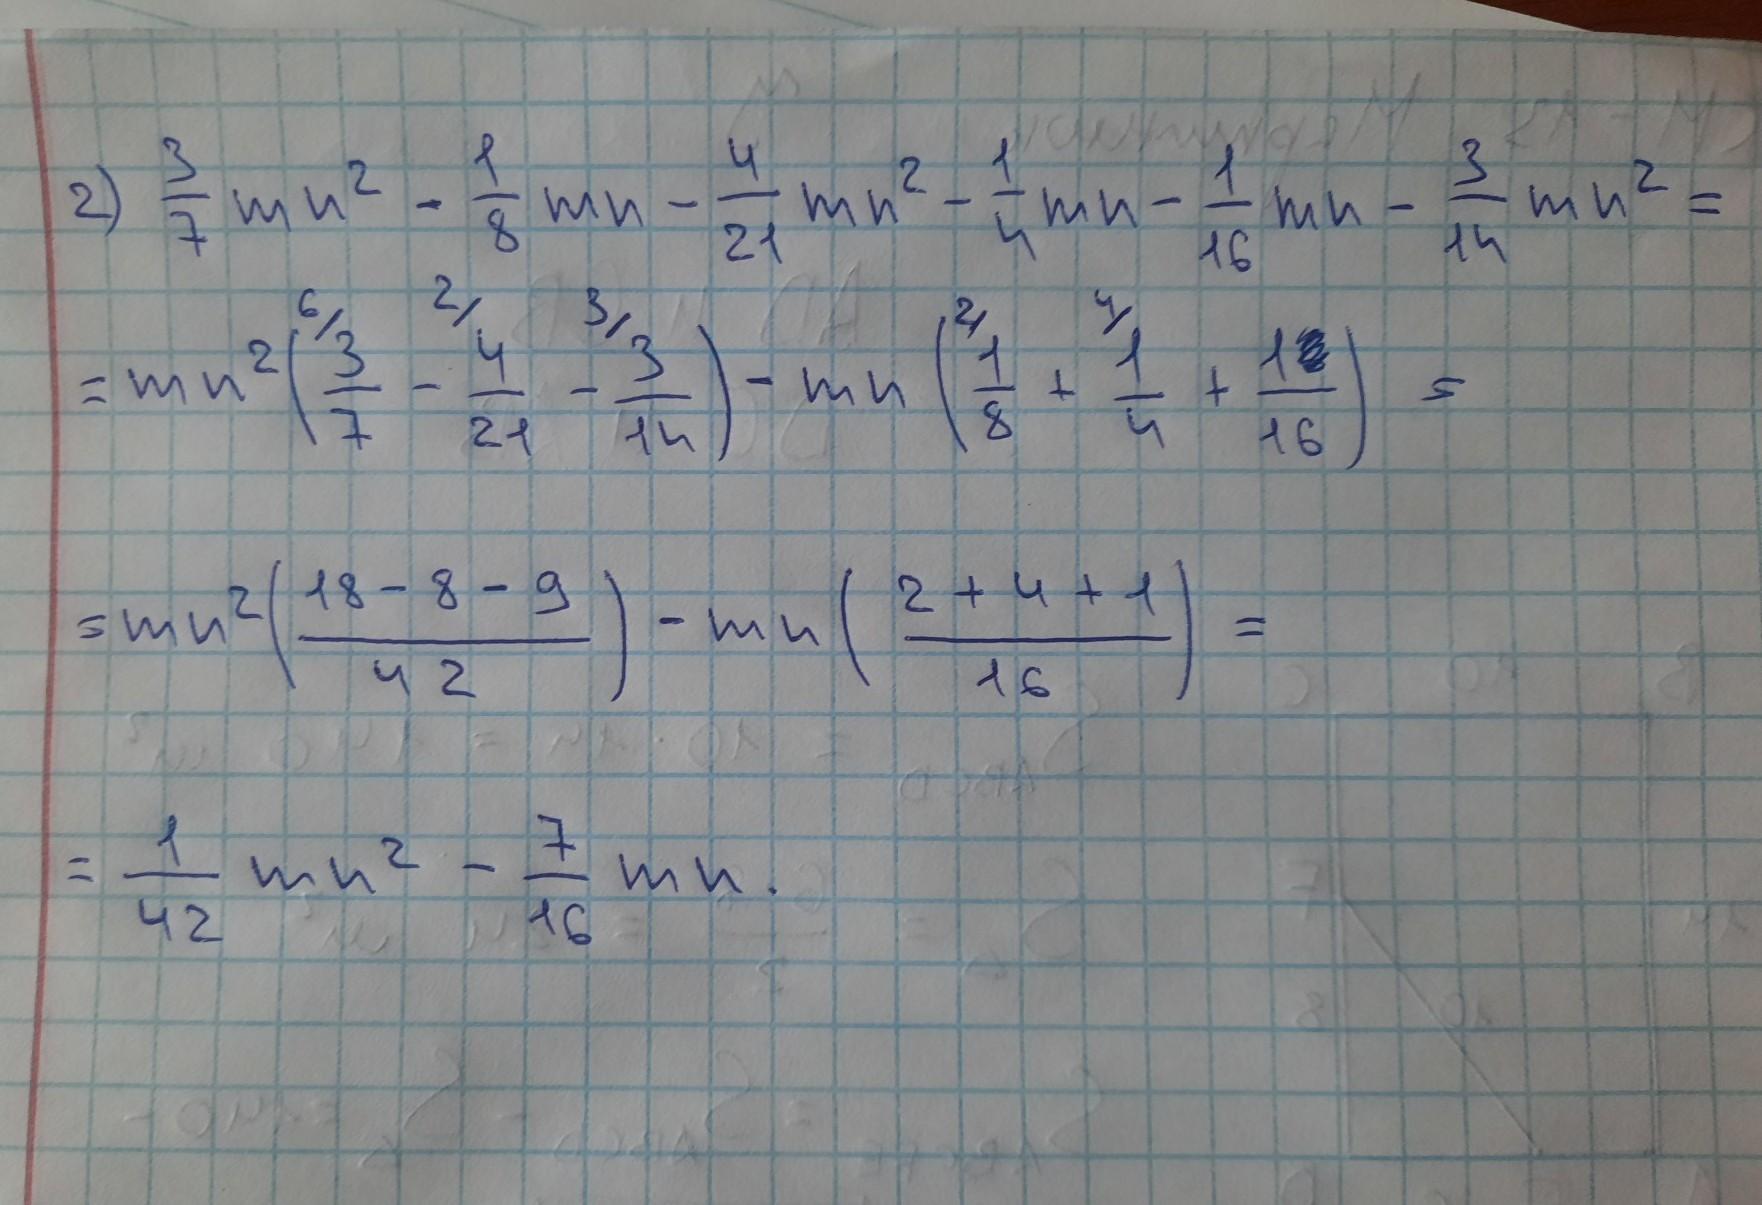 2) 3/7 mn² - 1/8 mn - 4/21 mn² - 1/4 mn - 1/16 mn - 3/14 mn² =
= mn² (6/ 3/7 - 2/ 4/21 - 3/ 3/14) - mn (2/ 1/8 + 4/ 1/4 + 1/16) =
= mn² ((18 - 8 - 9)/42) - mn ((2 + 4 + 1)/16) =
= 1/42 mn² - 7/16 mn.